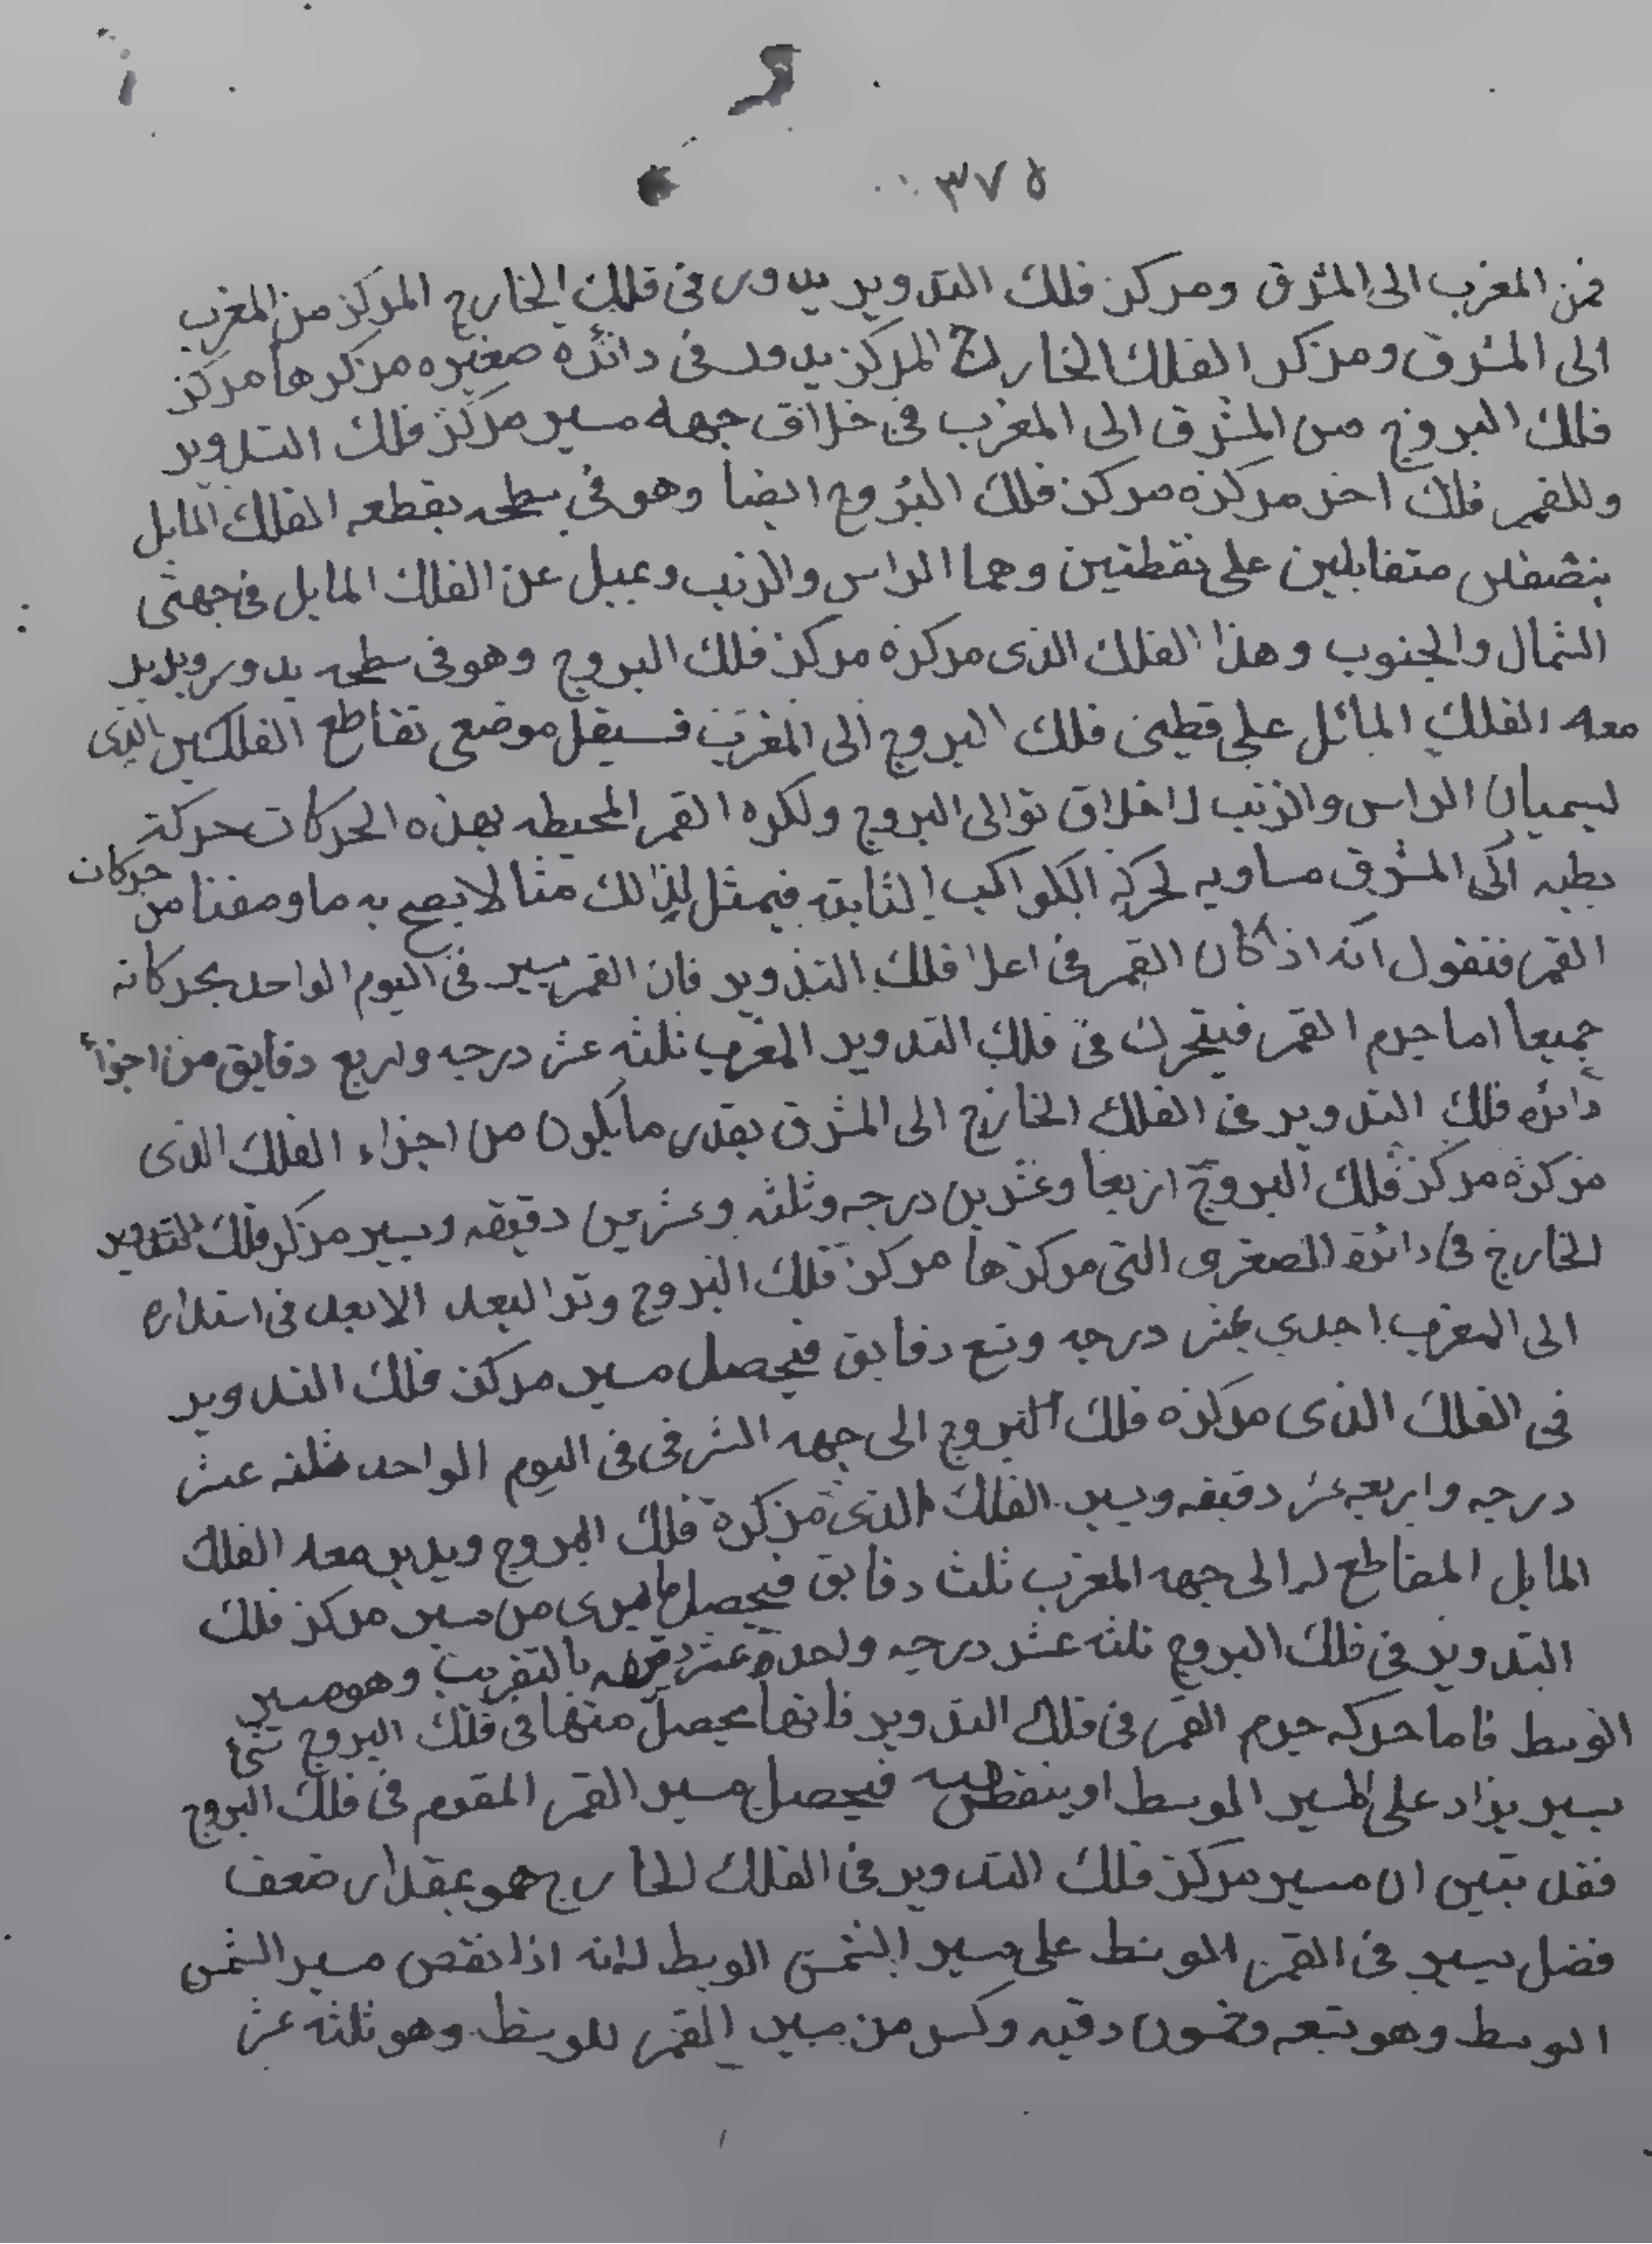 ٣٧٥
فمن المغرب الى المشرق ومركز فلك التدوير يدور فى فلك الخارج المركز من المغرب
الى المشرق ومركز الفلك الخارج المركز يدور فى دائره صغيره مركزها مركز
فلك البروج من المشرق الى المغرب فى خلاف جهه مسير مركز فلك التدوير
وللقمر فلك اخر مركزه مركز فلك البروج ايضا وهو فى سطحه يقطعه الفلك المايل
بنصفين متقابلين على نقطتين وهما الراس والذنب ويميل عن الفلك المايل فى جهتى
الشمال والجنوب وهذا الفلك الذى مركزه مركز فلك البروج وهو فى سطحه يدور ويدير
معه الفلك المائل على قطبى فلك البروج الى المغرب فسيقل موضعى تقاطع الفلكين الذى
ليسميان الراس والذنب لاخلاف توالى البروج ولكره القمر المحيطه بهذه الحركات حركة
بطيه الى المشرق مساويه لحركة الكواكب الثابته فيمثل لذلك مثالا يصح به ما وصفنا من حركات
القمر فنقول انه اذا كان القمر فى اعلا فلك التدوير فان القمر يسير فى اليوم الواحد بحركاته
جميعا اما جرم القمر فيتحرك فى فلك التدوير المغرب ثلثه عشر درجه واربع دقايق من اجزأ
دائره فلك التدوير فى الفلك الخارج الى المشرق بقدر ما يكون من اجزاء الفلك الذى
مركزه مركز فلك البروج اربعا وعشرين درجه وثلثه وعشرين دقيقه ويسير مركز فلك التدوير
الخارج فى دائرة الصغرى التى مركزها مركز فلك البروج وتر البعد الابعد فى استداره
الى المغرب احدى عشر درجه وتسع دقايق فيحصل مسير مركز فلك التدوير
فى الفلك الذى مركزه فلك البروج الى جهه الشرقى فى اليوم الواحد ثلثه عشر
درجه واربعه عشر دقيقه ويسير الفلك الذى مركزة فلك البروج ويدير معه الفلك
المايل المقاطع له الى جهه المغرب ثلث دقايق فيحصل ما يرى من مسير مركز فلك
التدوير فى فلك البروج ثلثه عشر درجه واحدة عشر دقيقه بالتقريب وهو مسير
الوسط فاما حركه جرم القمر فى فلك التدوير فانها يحصل منها فى فلك البروج شئ
يسير يزاد على المسير الوسط او ينقص منه فيحصل مسير القمر المقوم فى فلك البروج
فقد تبين ان مسير مركز فلك التدوير فى الفلك الخارج هو بمقدار ضعف
فضل يسير فى القمر الوسط على مسير الشمس الوسط لانه اذا نقص مسير الشمس
الوسط وهو تسعه وخمسون دقيه وكسر من مسير القمر للوسط وهو ثلثه عشر